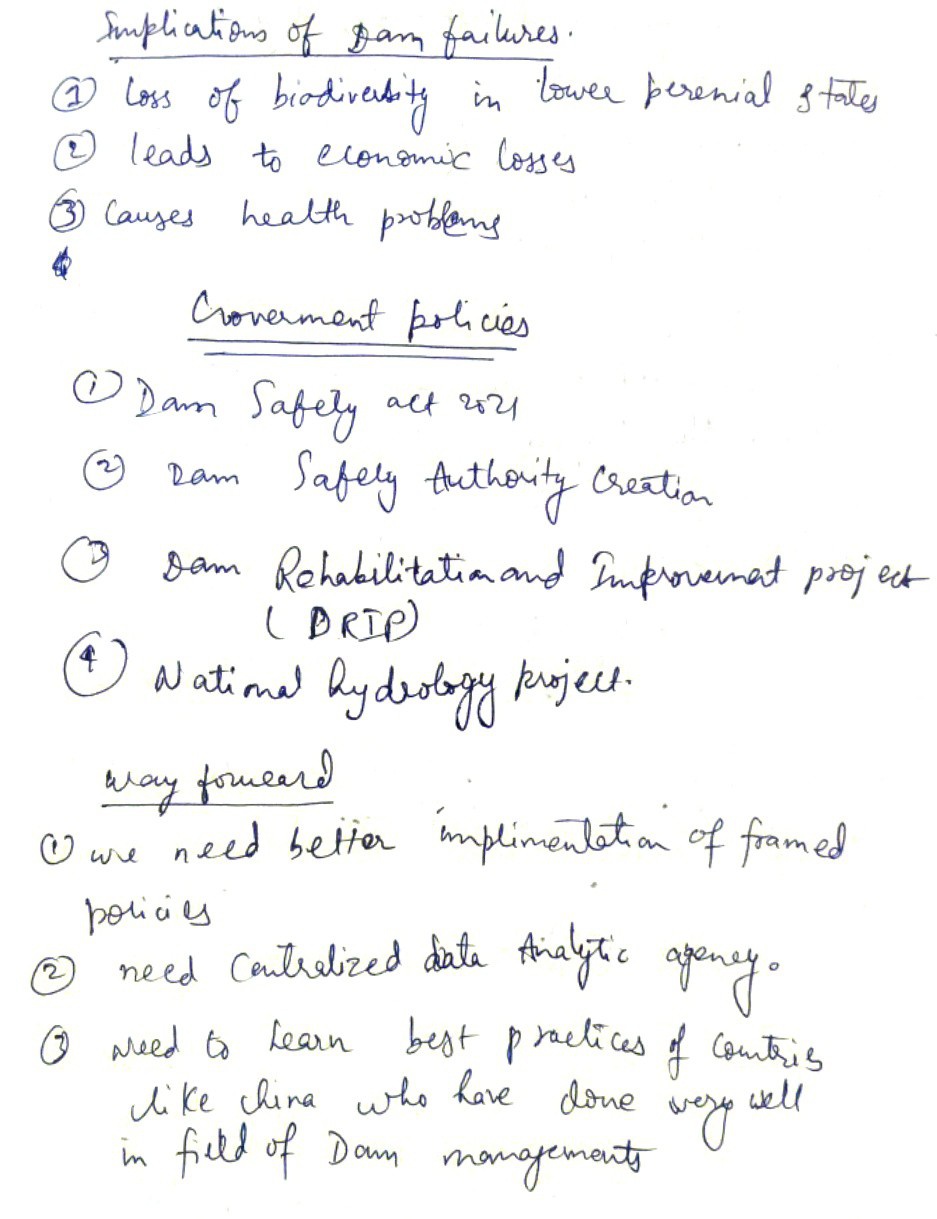 Implications of Dam failures.
① Loss of biodiversity in lower perenial states
② leads to economic losses
③ Causes health problems
Goverment policies
① Dam Safety act 2021
② Dam Safety Authority Creation
③ Dam Rehabilitation and Improvement project
(DRIP)
④ National hydrology project.
way forward
① we need better implimentation of framed
policies
② need Centralized data Analytic agency.
③ need to learn best practices of Countries
like china who have done very well
in field of Dam managements